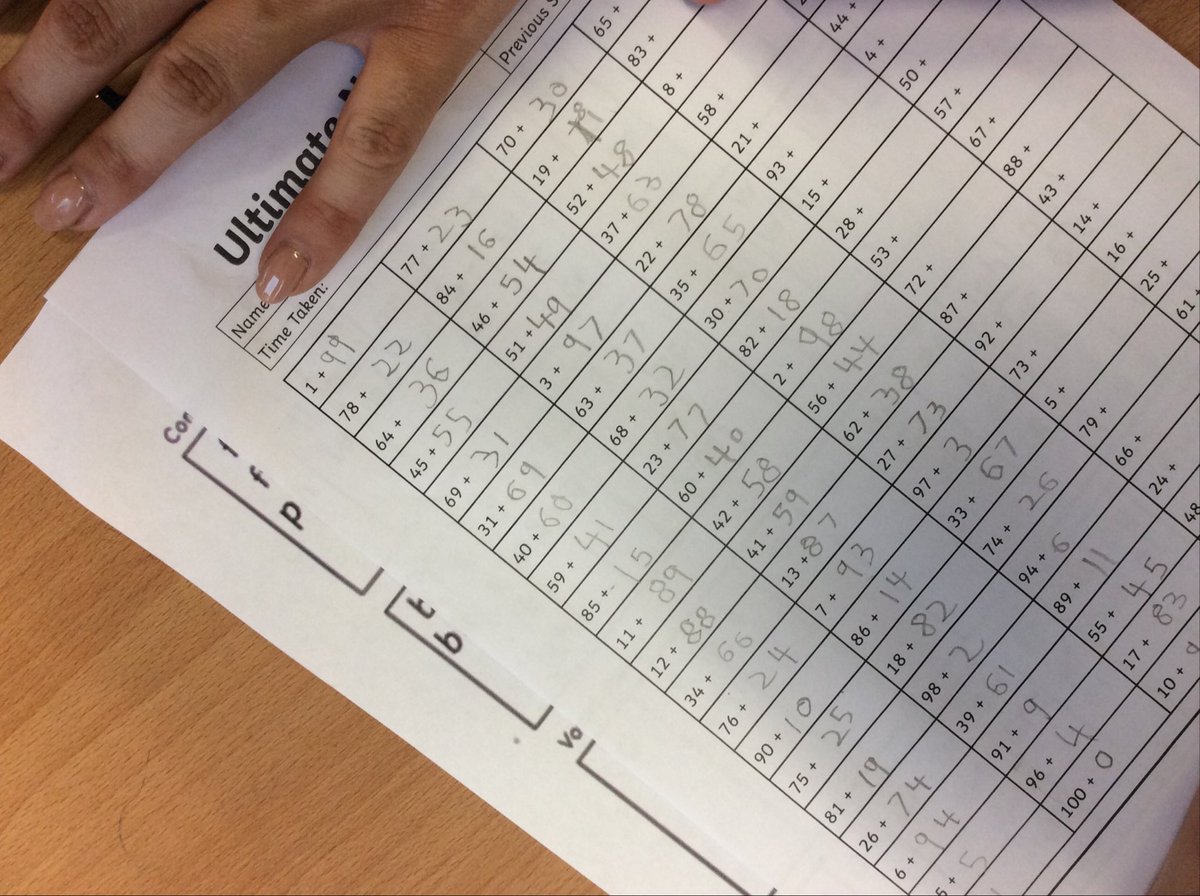 Ultimate
Name
Time Taken:
Previous S
1 + 99
78 + 22
64 + 36
45 + 55
69 + 31
31 + 69
40 + 60
59 + 41
85 + 15
11 + 89
12 + 88
34 + 66
76 + 24
90 + 10
75 + 25
81 + 19
26 + 74
6 + 94
5 + 5
77 + 23
84 + 16
46 + 54
51 + 49
3 + 97
63 + 37
68 + 32
23 + 77
60 + 40
42 + 58
41 + 59
13 + 87
7 + 93
86 + 14
18 + 82
98 + 2
39 + 61
91 + 9
96 + 4
100 + 0
70 + 30
19 +
52 + 48
37 + 63
22 + 78
35 + 65
30 + 70
82 + 18
2 + 98
56 + 44
62 + 38
27 + 73
97 + 3
33 + 67
74 + 26
94 + 6
89 + 11
55 + 45
17 + 83
10 +
65 +
83 +
8 +
58 +
21 +
93 +
15 +
28 +
53 +
72 +
87 +
92 +
73 +
5 +
79 +
66 +
24 +
48
44 +
4 +
50 +
57 +
67 +
88 +
43 +
14 +
16 +
25 +
61 +
Con
f
p
t
b
Vo